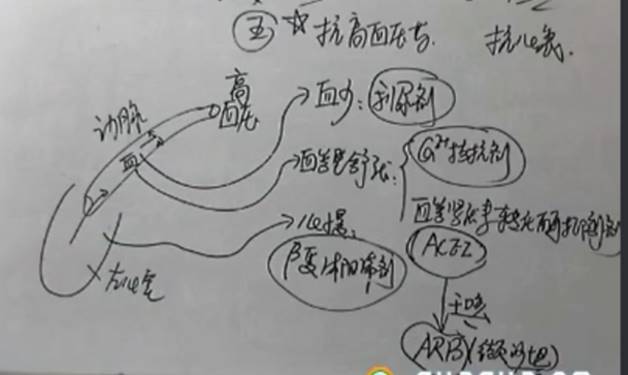 五 ☆ 抗高血压药 抗心衰
高血压
动脉
血
血少: 利尿剂
血管舒张: Ca²⁺拮抗剂
血管紧张素转化酶抑制剂
ACEI
心慢: β受体阻滞剂
左心室
干咳
ARB(缬沙坦)